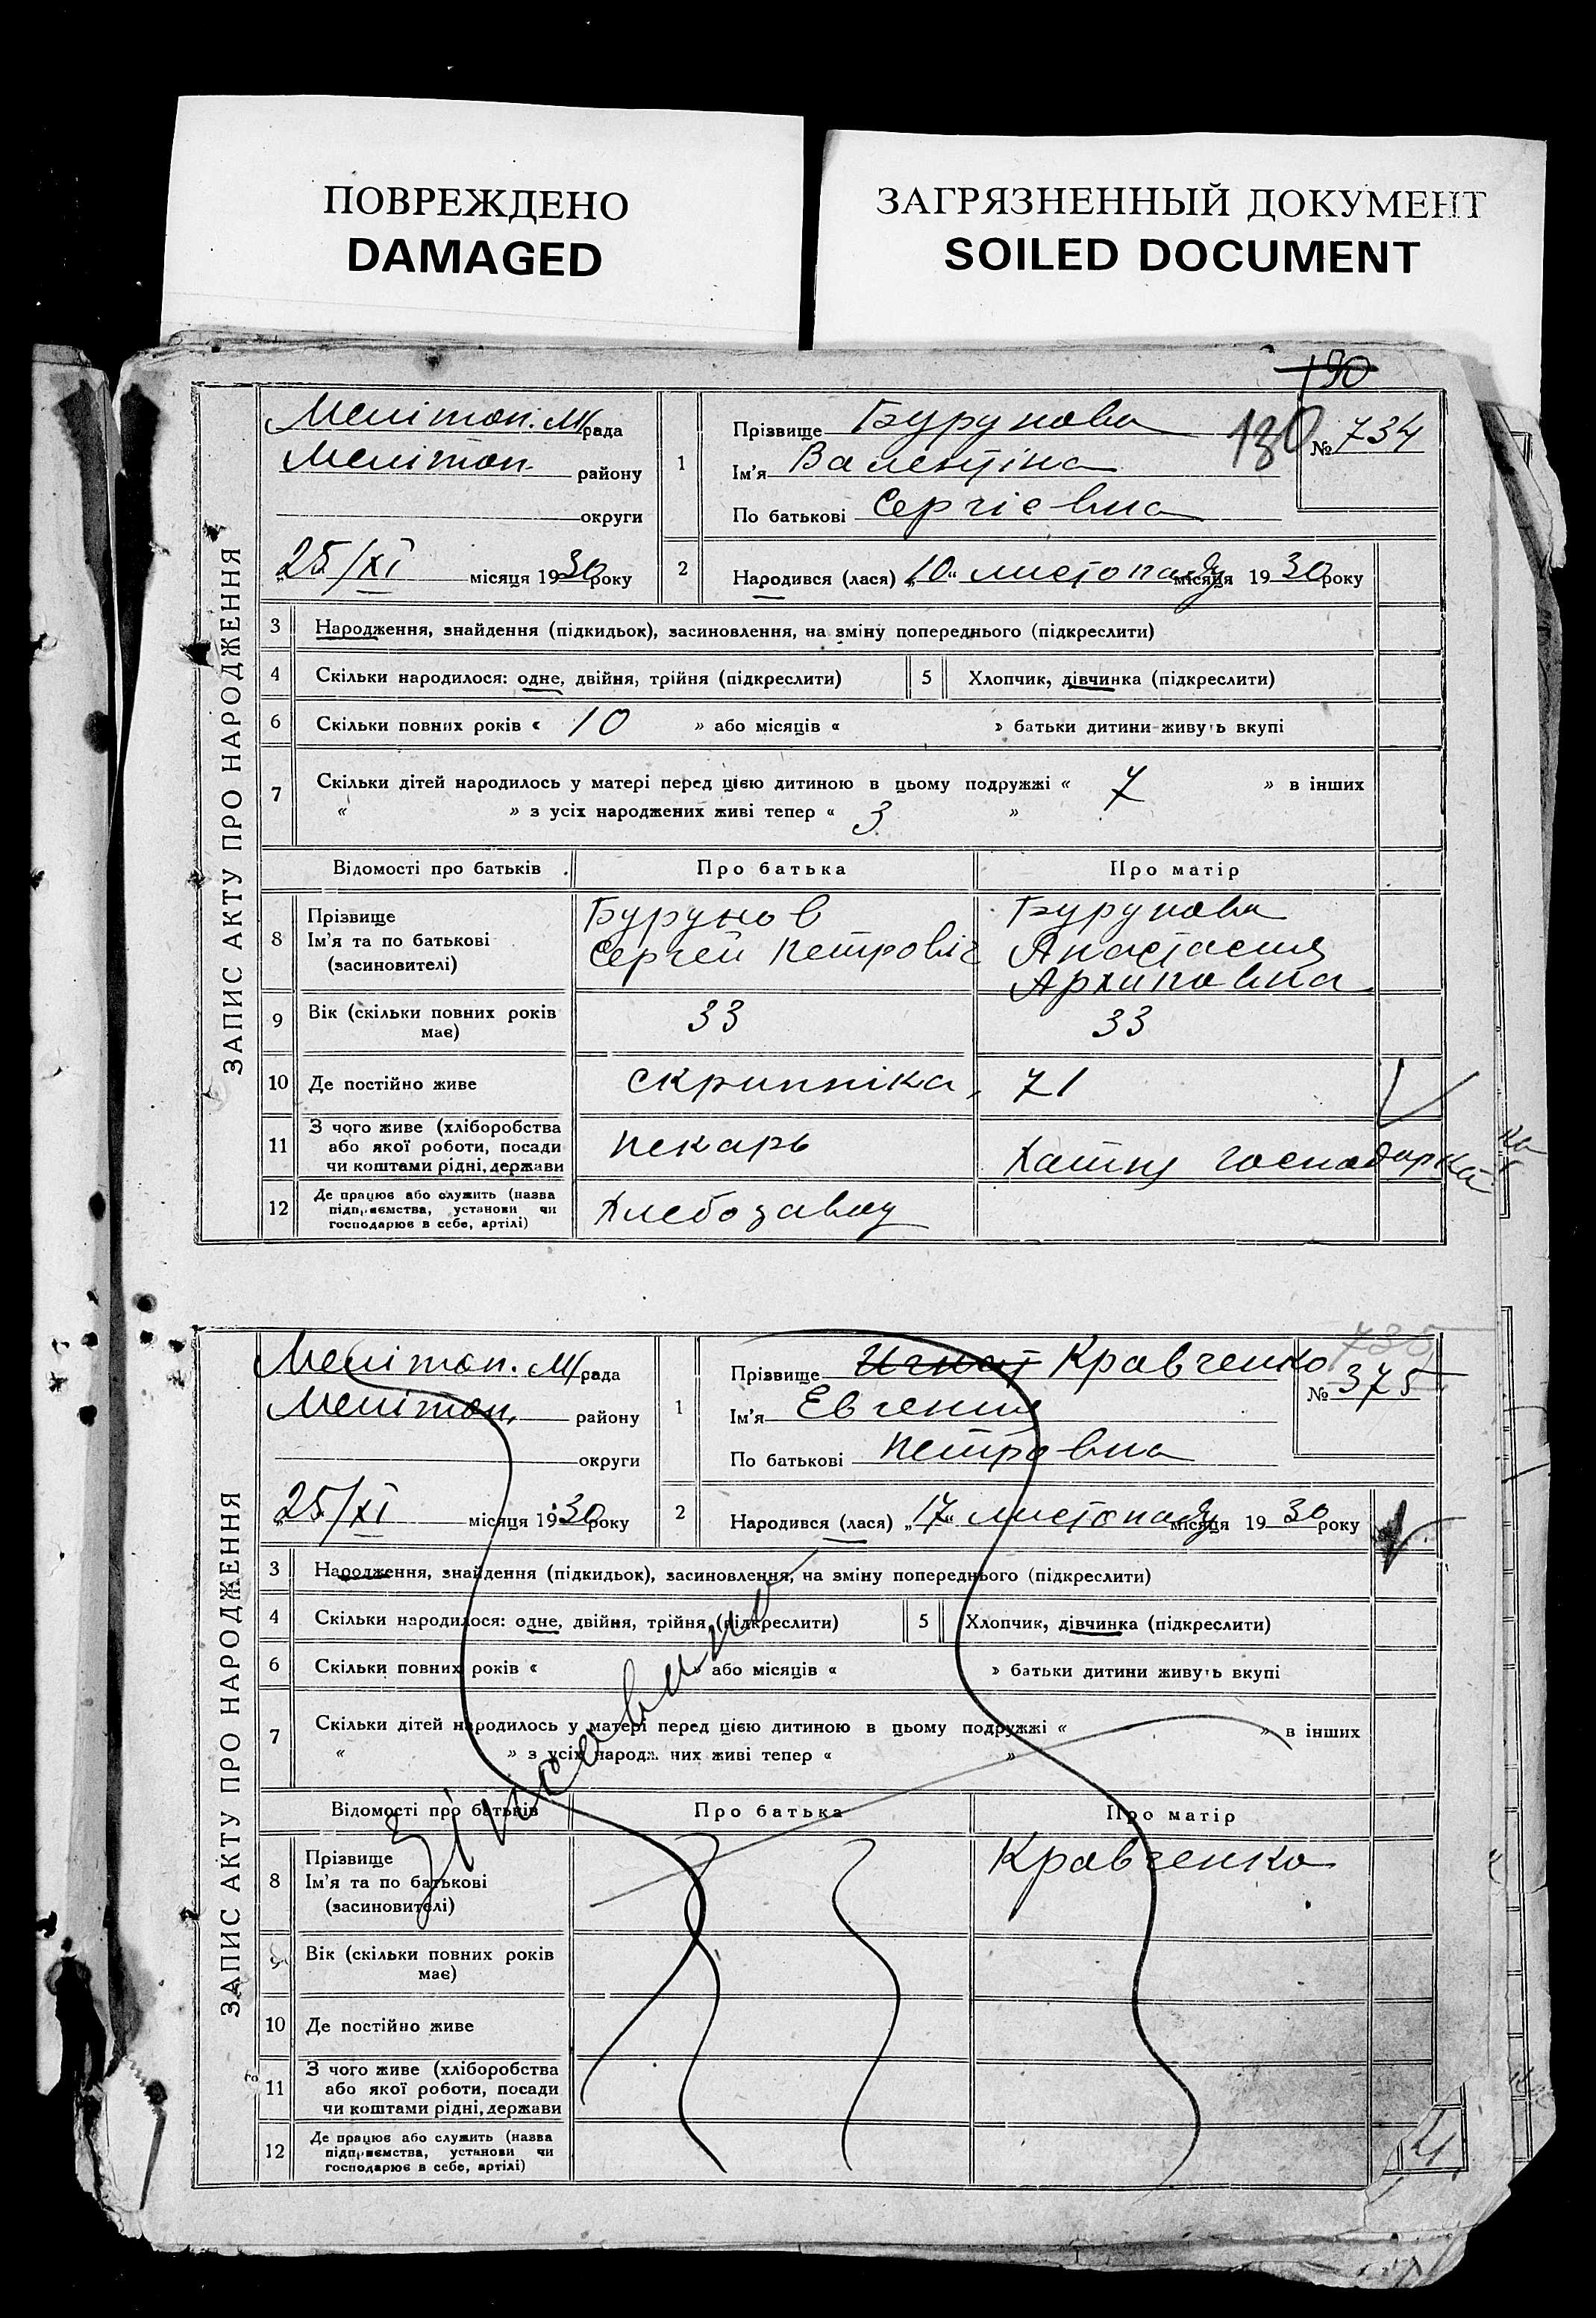 ПОВРЕЖДЕНО
DAMAGED
ЗАГРЯЗНЕННЫЙ ДОКУМЕНТ
SOILED DOCUMENT
190
ЗАПИС АКТУ ПРО НАРОДЖЕННЯ
Мелітоп. М/рада
Мелітоп. району
округи
"25/XI місяця 1930 року
1
Прізвище Бурунова
Ім'я Валентіна
По батькові Сергієвна
180
№ 734
2
Народився (лася) "10" листопаду місяця 1930 року
3 Народження, знайдення (підкидьок), засиновлення, на зміну попереднього (підкреслити)
4 Скільки народилося: одне, двійня, трійня (підкреслити)
5 Хлопчик, дівчинка (підкреслити)
6 Скільки повних років « 10 » або місяців « » батьки дитини живуть вкупі
7 Скільки дітей народилось у матері перед цією дитиною в цьому подружжі « 7 » в інших
« » з усіх народжених живі тепер « 3 »
Відомості про батьків Про батька Про матір
8 Прізвище
Ім'я та по батькові
(засиновителі)
Бурунов
Сергей Петровіч
Бурунова
Анастасия
Архиповна
9 Вік (скільки повних років має) 33 33
10 Де постійно живе скрипніка, 71
11 З чого живе (хліборобства
або якої роботи, посади
чи коштами рідні, держави
пекарь
Хатня господарка
12 Де працює або служить (назва
підприємства, установи чи
господарює в себе, артілі)
Хлебозавод
ЗАПИС АКТУ ПРО НАРОДЖЕННЯ
Мелітоп. М/рада
Мелітоп. району
округи
"25/XI місяця 1930 року
1
Прізвище Игнат Кравченко
Ім'я Евгения
По батькові Петровна
735
№ 375
2
Народився (лася) "17" листопаду місяця 1930 року
3 Народження, знайдення (підкидьок), засиновлення, на зміну попереднього (підкреслити)
4 Скільки народилося: одне, двійня, трійня (підкреслити)
5 Хлопчик, дівчинка (підкреслити)
6 Скільки повних років « » або місяців « » батьки дитини живуть вкупі
7 Скільки дітей народилось у матері перед цією дитиною в цьому подружжі « » в інших
« » з усіх народжених живі тепер « »
Відомості про батьків Про батька Про матір
8 Прізвище
Ім'я та по батькові
(засиновителі)
Кравченко
9 Вік (скільки повних років має)
10 Де постійно живе
11 З чого живе (хліборобства
або якої роботи, посади
чи коштами рідні, держави
12 Де працює або служить (назва
підприємства, установи чи
господарює в себе, артілі)